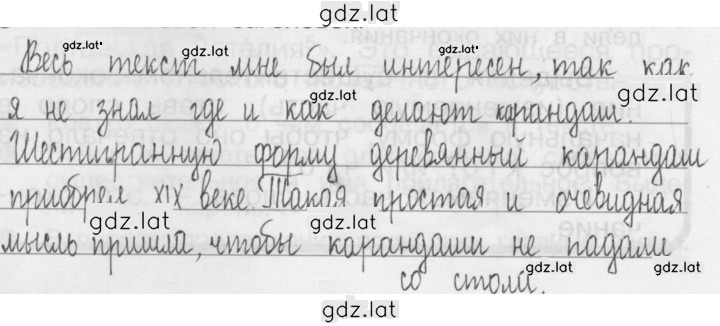 gdz.lat
gdz.lat gdz.lat gdz.lat
Весь текст мне был интересен, так как
gdz.lat gdz.lat
я не знал где и как делают карандаш
Шестигранную форму деревянный карандаш
приобрел XIX веке Такая простая и очевидная
gdz.lat gdz.lat
мысль пришла, чтобы карандаши не падали
gdz.lat gdz.lat
со стола.
gdz.lat